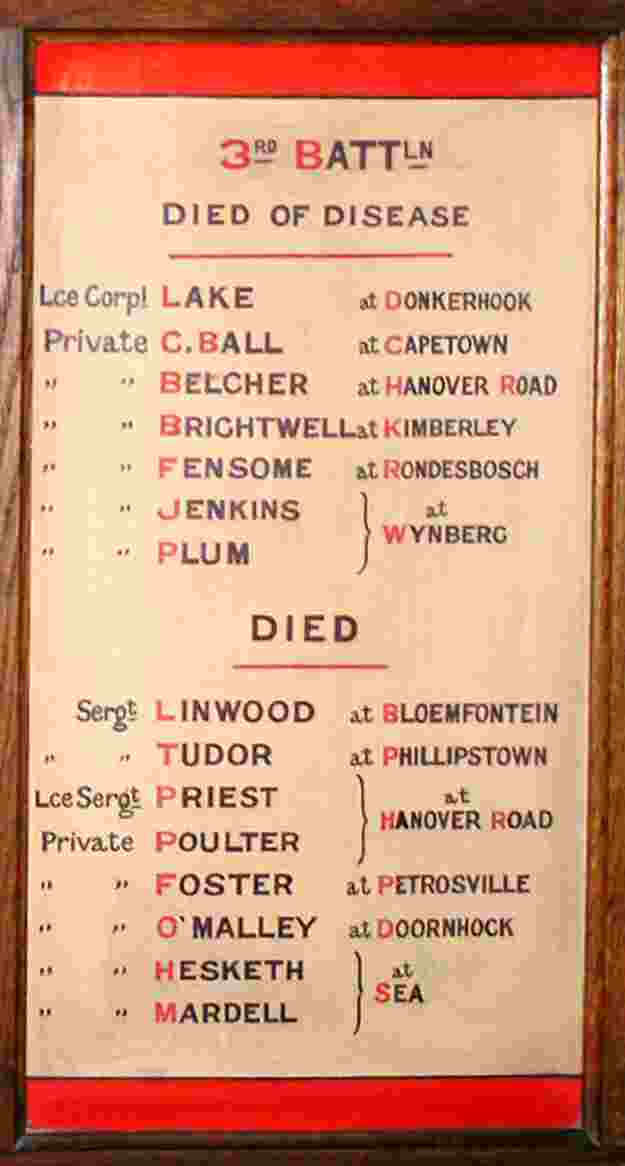 3RD BATTLN
DIED OF DISEASE
Lce Corpl LAKE at DONKERHOOK
Private C. BALL at CAPETOWN
" " BELCHER at HANOVER ROAD
" " BRIGHTWELL at KIMBERLEY
" " FENSOME at RONDESBOSCH
" " JENKINS } at
" " PLUM WYNBERG
DIED
Sergt LINWOOD at BLOEMFONTEIN
" " TUDOR at PHILLIPSTOWN
Lce Sergt PRIEST } at
Private POULTER HANOVER ROAD
" " FOSTER at PETROSVILLE
" " O'MALLEY at DOORNHOCK
" " HESKETH } at
" " MARDELL SEA